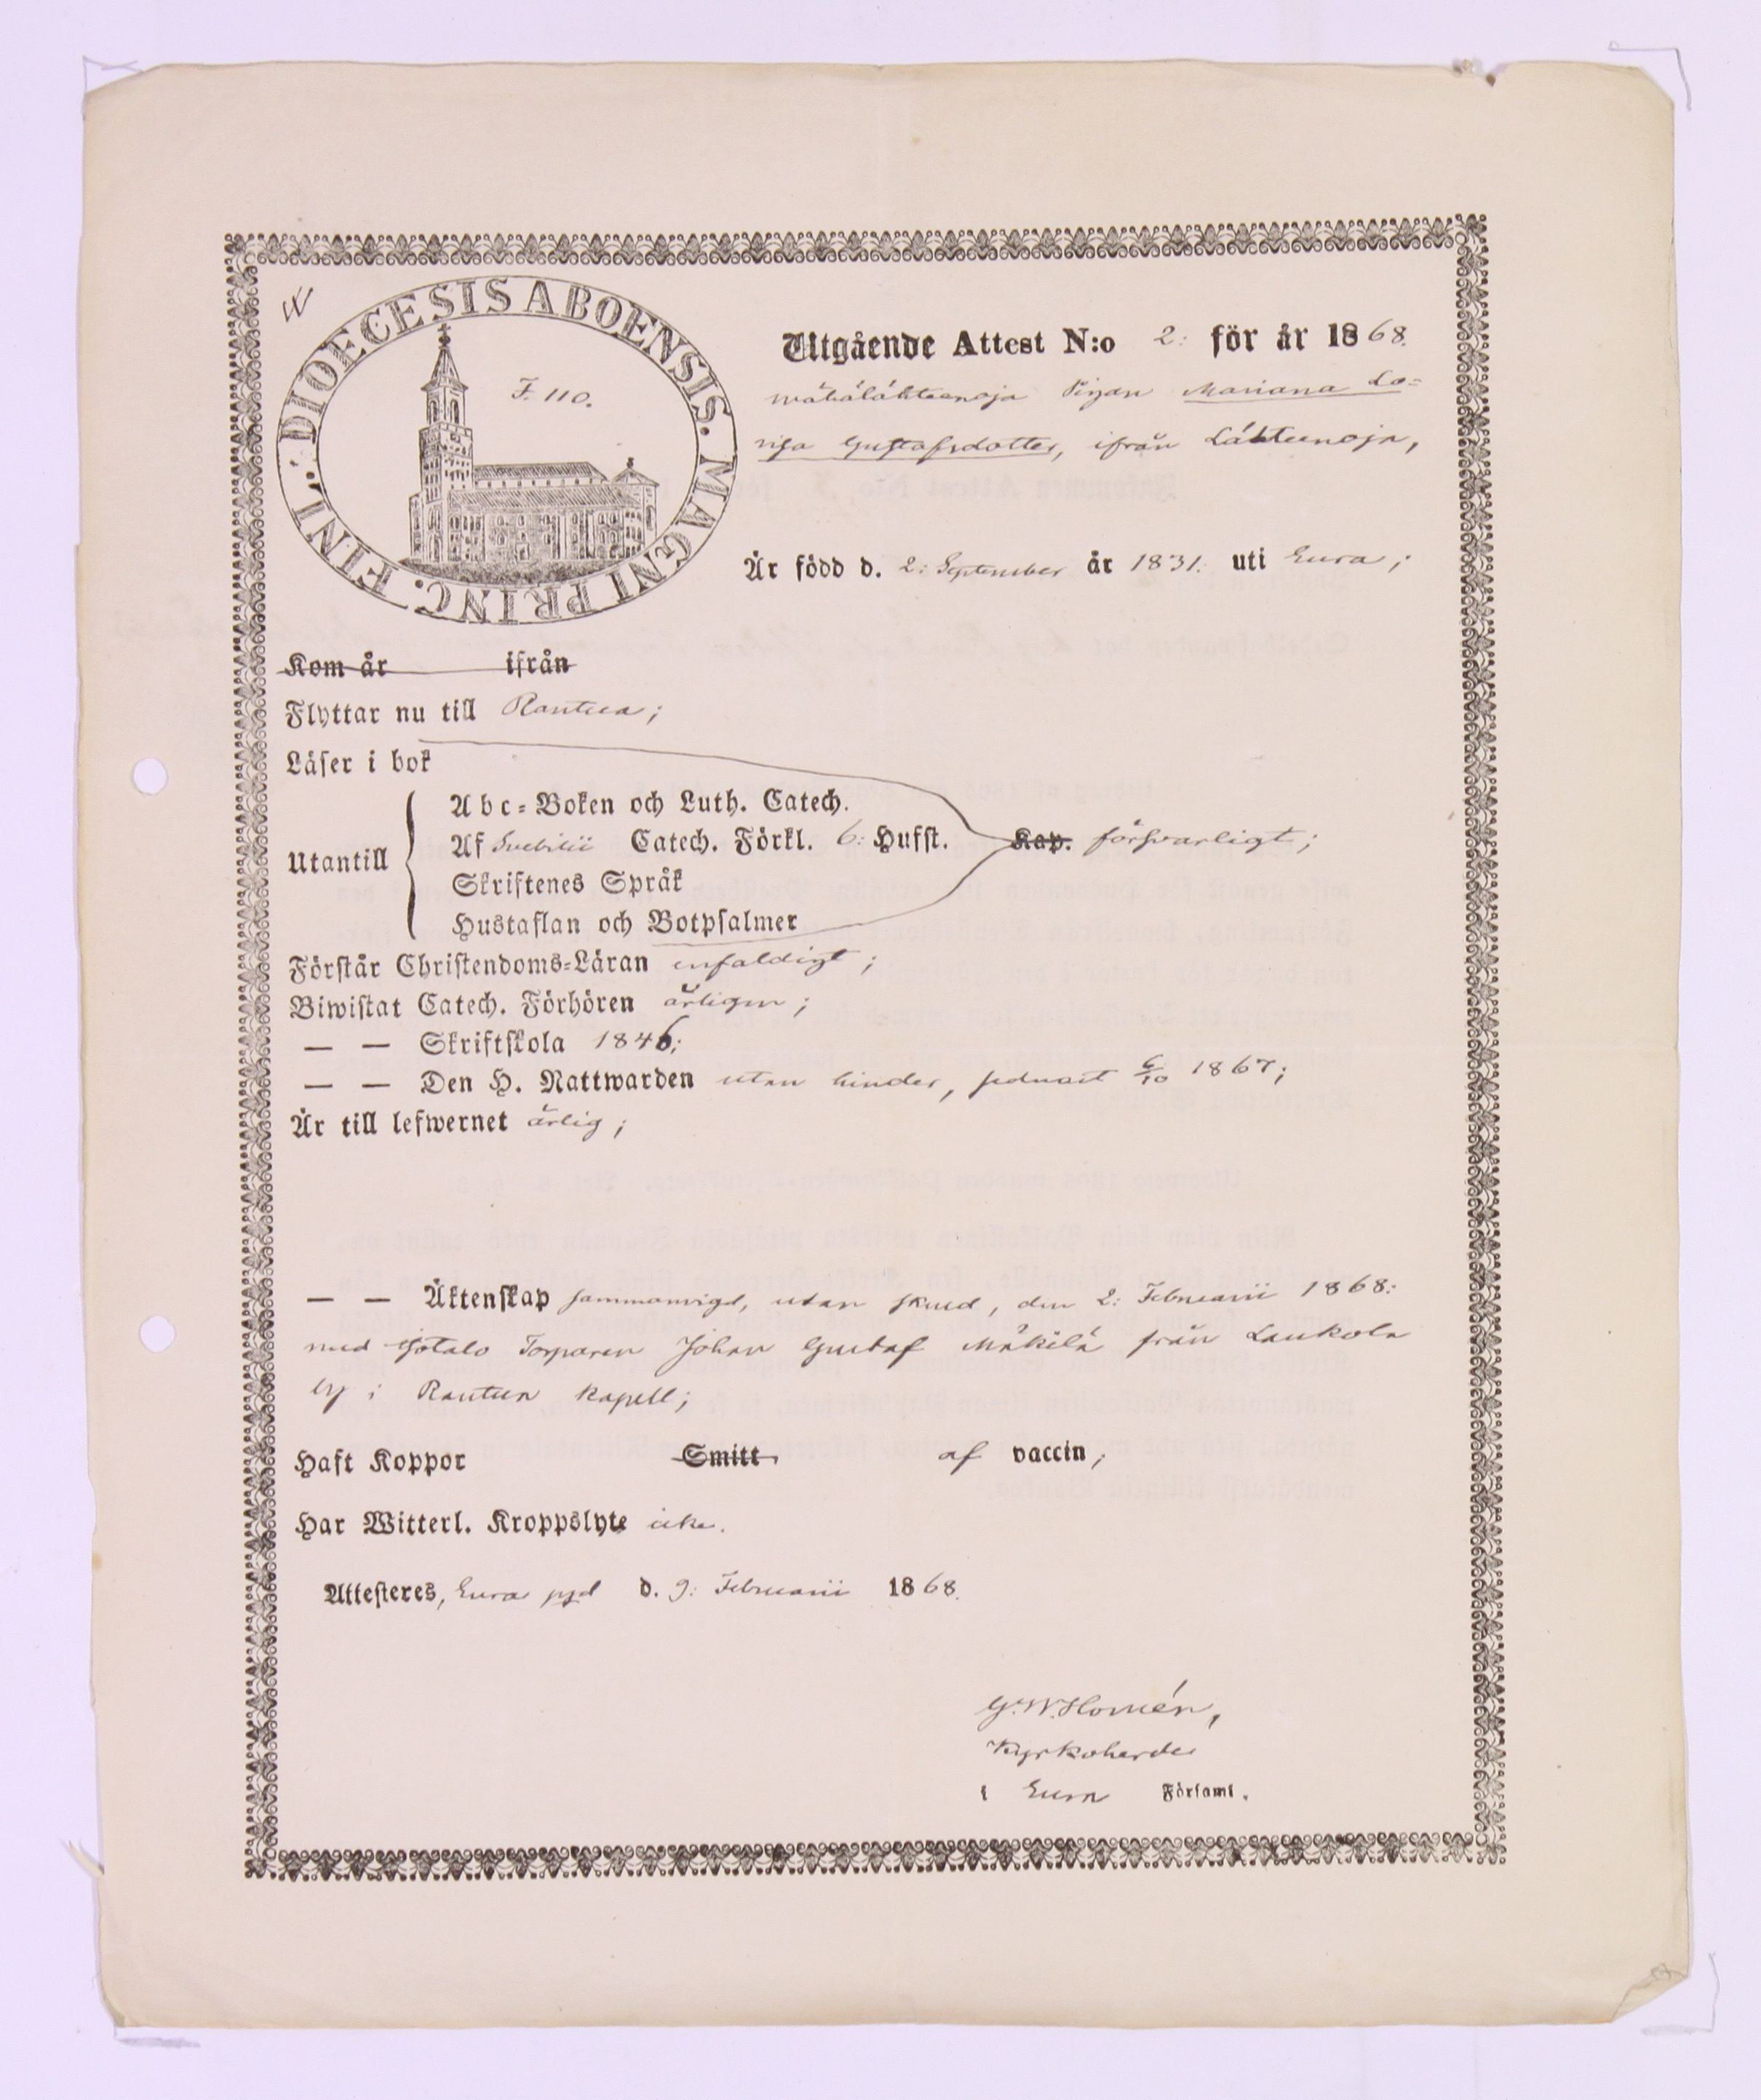 DIOECESIS ABOENSIS. MAGNI PRINC. FINL.
F. 110.
Utgående Attest N:o 2: för år 1868.
Pigan Mariana Lo=
visa Gustafsdotter, ifrån Lähteenoja,
Är född d. 2: September år 1831. uti Eura;
Kom år ifrån
Flyttar nu till Rantua;
Läser i bok
Utantill
Abc=Boken och Luth. Catech.
Af Svebilii Catech. Förkl. 6: Hufst. Kap. försvarligt;
Skriftenes Språk
Hustaflan och Botpsalmer
Förstår Christendoms=Läran enfaldigt;
Biwistat Catech. Förhören årligen;
— — Skriftskola 1846;
— — Den H. Nattwarden utan hinder, sednast 6/10 1867;
Är till lefwernet ärlig;
— — Äktenskap sammanvigd, utan skuld, den 2: Februarii 1868:
med Torparen Johan Gustaf Mäkilä från Laukola
by i kapell;
Haft Koppor Smitt af vaccin;
Har Witterl. Kroppslyte icke.
Attesteres, Eura pgd d. 9: Februarii 1868.
G. W. Homén,
Kyrkoherde
i Eura Församl.